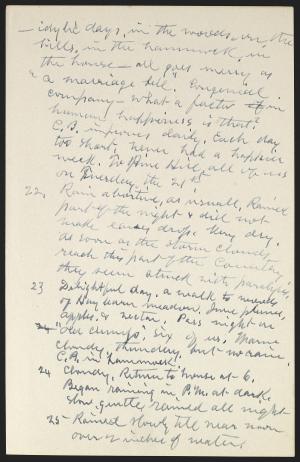 — idylic days, in the woods, on the
hills, in the hammock, in
the house — all goes merry as
"a marriage bell". Congenial
company — what a factor in
human happiness is that!
C.B. improves daily. Each day
too short, never had a happier
week. To Pine Hill, all of us
on Tuesday, the 21st
22, Rain abortive, as usual, Rained
part of the night & did not
make eaves drop. Very dry.
As soon as the storm clouds
reach this part of the Country,
they seem struck with paralysis.
23 Delightful day. a walk to woods
of Day barn meadow, June plums,
apples, & nectar. Pass night on
"Old Clump", six of us. Warm
cloudy, thundery, but no rain.
C.B. in hammock.
24 Cloudy, Return to house at 6.
Began raining in P.M. at dark.
slow, gentle, rained all night
25 - Rained slowly till near noon
over 2 inches of water.